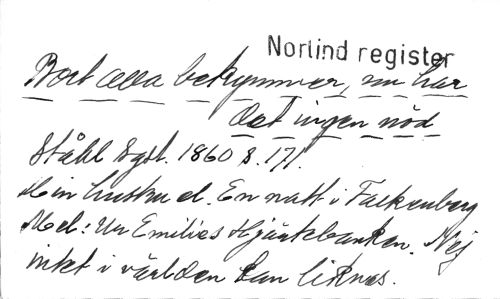 Norlind register
Bort alla bekymmer, nu har
det ingen nöd
Ståhl Sgst. 1860 s. 171.
Min hustru el. En natt i Falkenberg
Mel: Ur Emilies Hjärtebanken. Nej
intet i världen kan liknas.